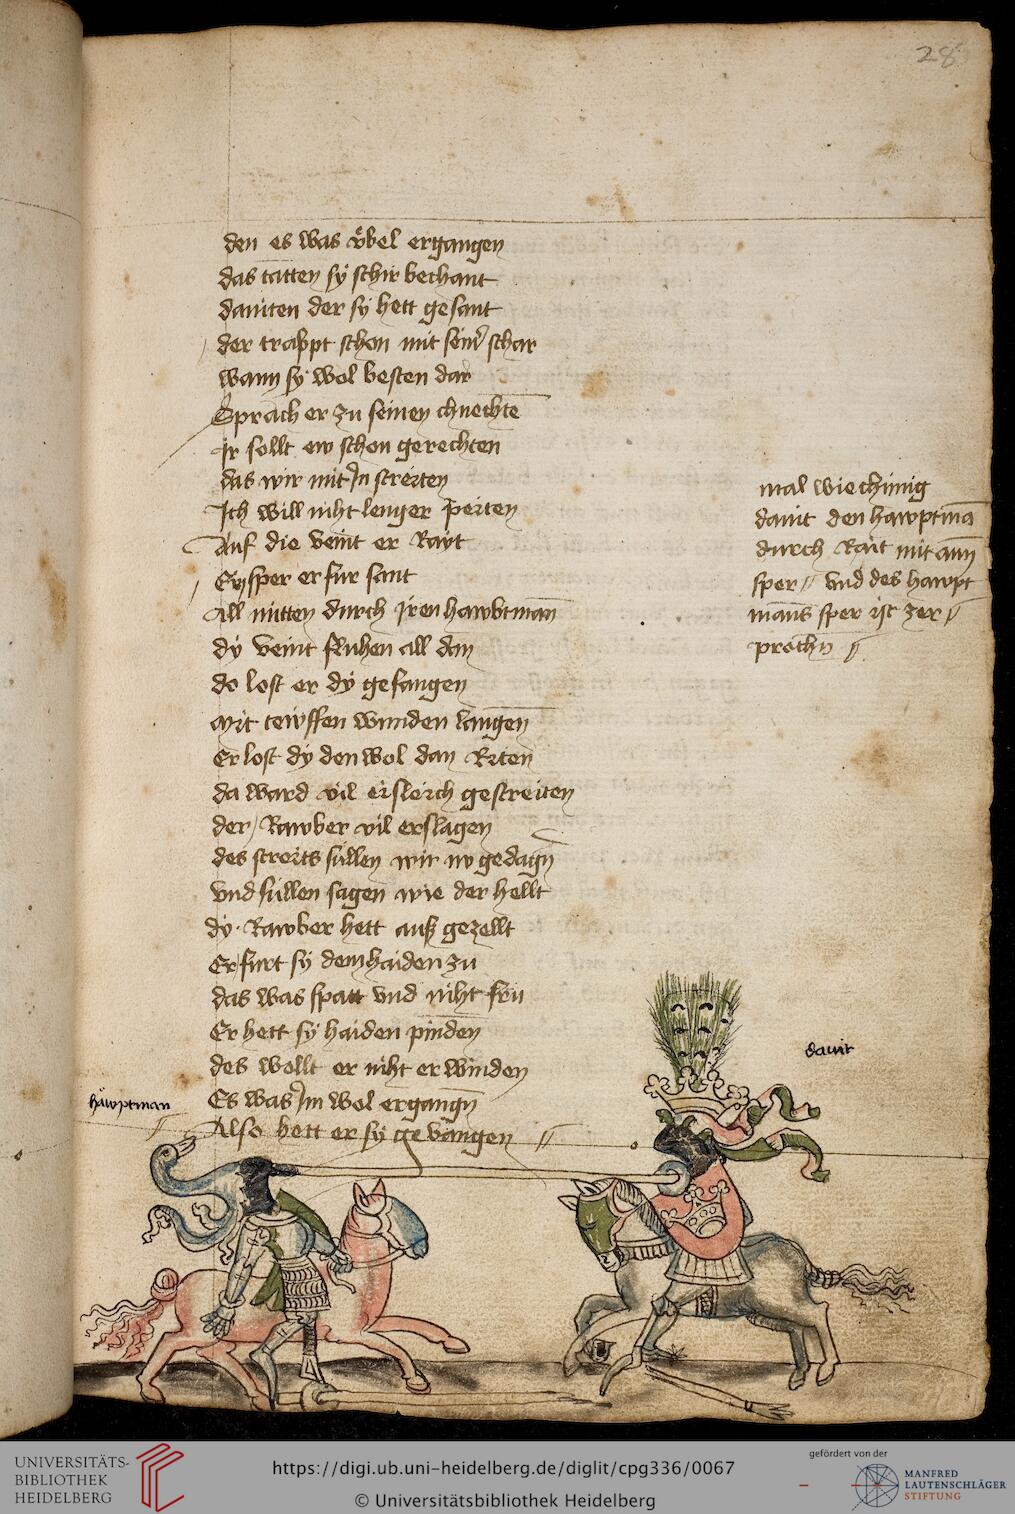 28
den es was v̈bel ergangen
das tatten sÿ schir bechant
dauiten der sÿ hett gesant
der trabbt schon mit seiner schar
wann sÿ wol besten dar
Sprach er zu seinen chnechte
Ir sollt ew schon gerechten
das wir mit In streiten
Ich will niht lenger peiten
Auf die veint er Rayt
Eyn sper er fur sant
All mitten durch iren hawbtman
dÿ veint fluhen all dan
do lost er dÿ gefangen
mit tewffen wunden langen
Er lost dÿ den wol dan Riten
da ward vil eisleich gestreiten
der Rawber vil erslagen
des streits sullen wir nw gedagn
vnd sullen sagen wie der hellt
dÿ Rawber hett auß gezellt
Er furt sÿ dem haiden zu
das was spatt vnd niht fru
Er hett sÿ haiden pinden
des wollt er niht erwinden
Es was Im wol ergangn
Also hett er sÿ gevangen
mal wie chünig
dauit den hawptman
durch Rait mit aim
sper vnd des hawpt
mans sper ist zer
prochn
dauit
häwptman
UNIVERSITÄTS-
BIBLIOTHEK
HEIDELBERG
https://digi.ub.uni-heidelberg.de/diglit/cpg336/0067
© Universitätsbibliothek Heidelberg
gefördert von der
MANFRED
LAUTENSCHLÄGER
STIFTUNG